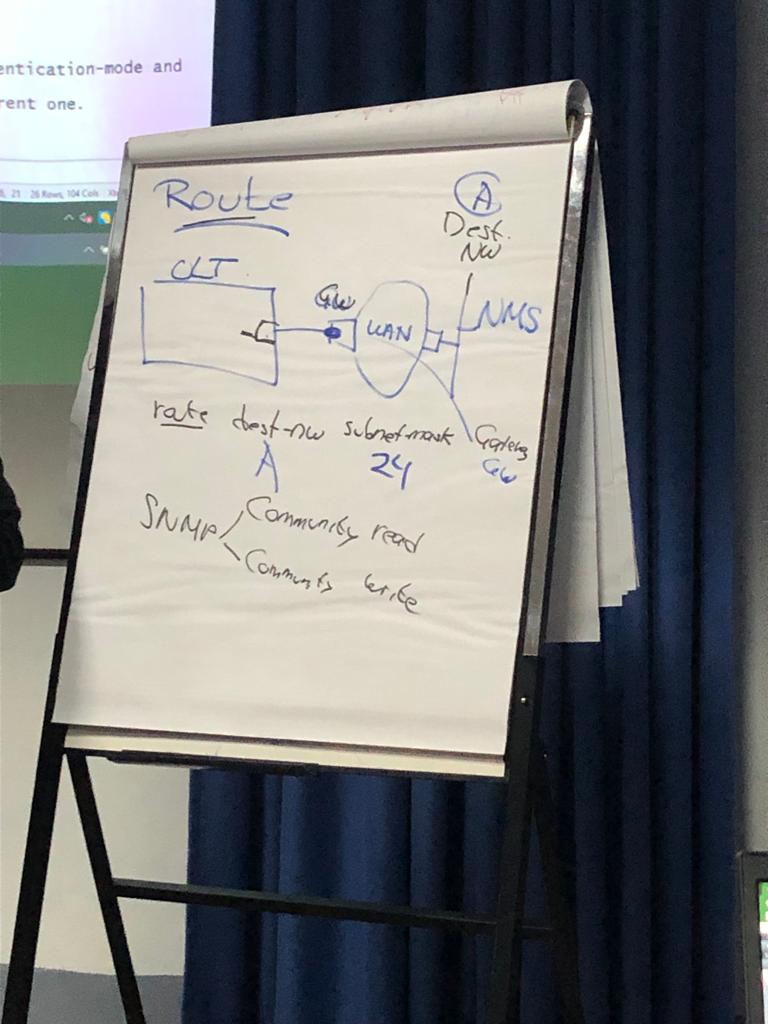 entication-mode and
rent one.
21 26 Rows, 104 Cols
Route
A
Dest.
NW
OLT
GW
WAN
NMS
route dest-nw subnetmask Gateway
A 24 GW
SNMP
Community read
Community write